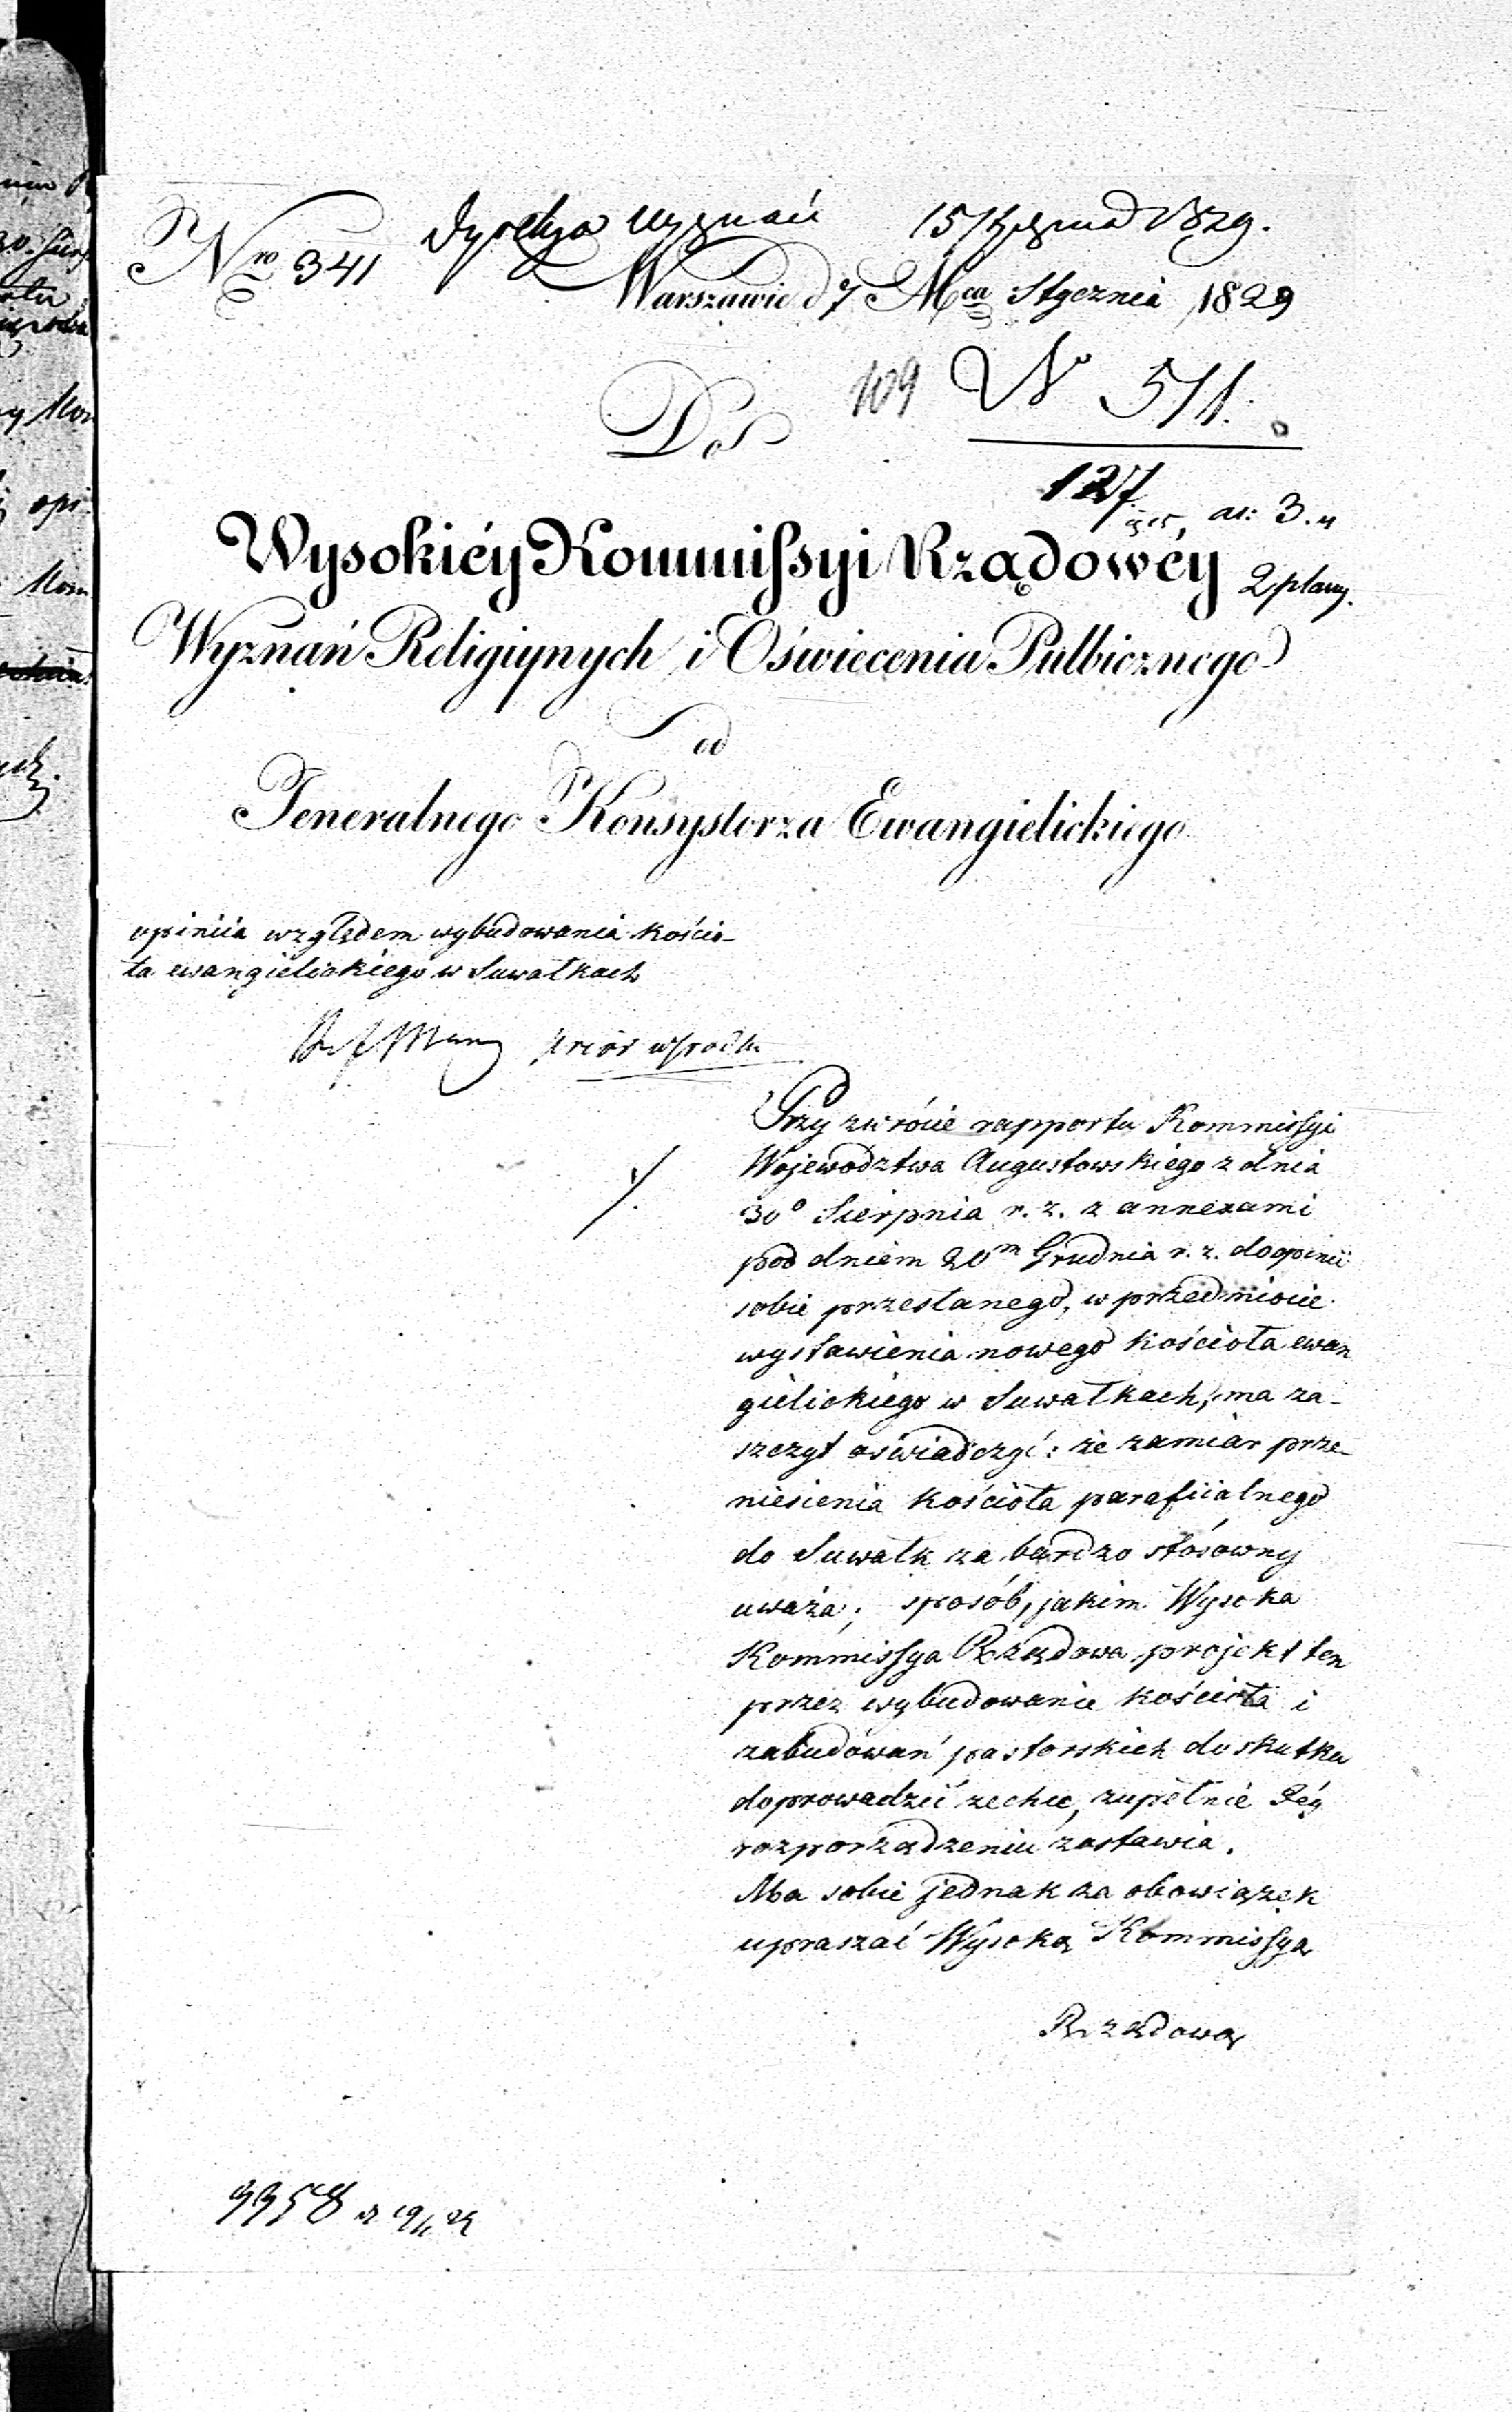 Dyrekcya Wyznań 15 Stycznia 1829.
Nro 341
Warszawie d 7 Mca Stycznia 1829
109 No 511.
Do
127
ar: 3.
2 plany.
Wysokiéy Kommissyi Rządowéy
Wyznań Religiynych i Oświecenia Pulbicznego
od
Jeneralnego Konsystorza Ewangielickiego
opiniia względem wybudowania kościo-
ła ewangielickiego w Suwałkach
Przy zwrócie rapportu Kommissyi
Wojewodztwa Augustowskiego z dnia
30o Sierpnia r. z. z annexami
pod dniem 20m Grudnia r. z. do opinii
sobie przesłanego, w przedmiocie
wystawienia nowego kościoła ewan
gielickiego w Suwałkach, ma za-
szczyt oświadczyć: że zamiar prze-
niesienia kościoła parafiialnego
do Suwałk za bardzo stósowny
uważa; sposób, jakim Wysoka
Kommissya Rządowa projekt ten
przez wybudowanie kościoła i
zabudowań pastorskich do skutku
doprowadzić zechce, zupełnie Jéy
rozporządzeniu zostawia.
Ma sobie jednak za obowiązek
upraszać Wysoką Kommissyą
Rządową